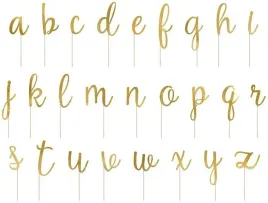 a b c d e f g h i
j k l m n o p q r
s t u v w x y z